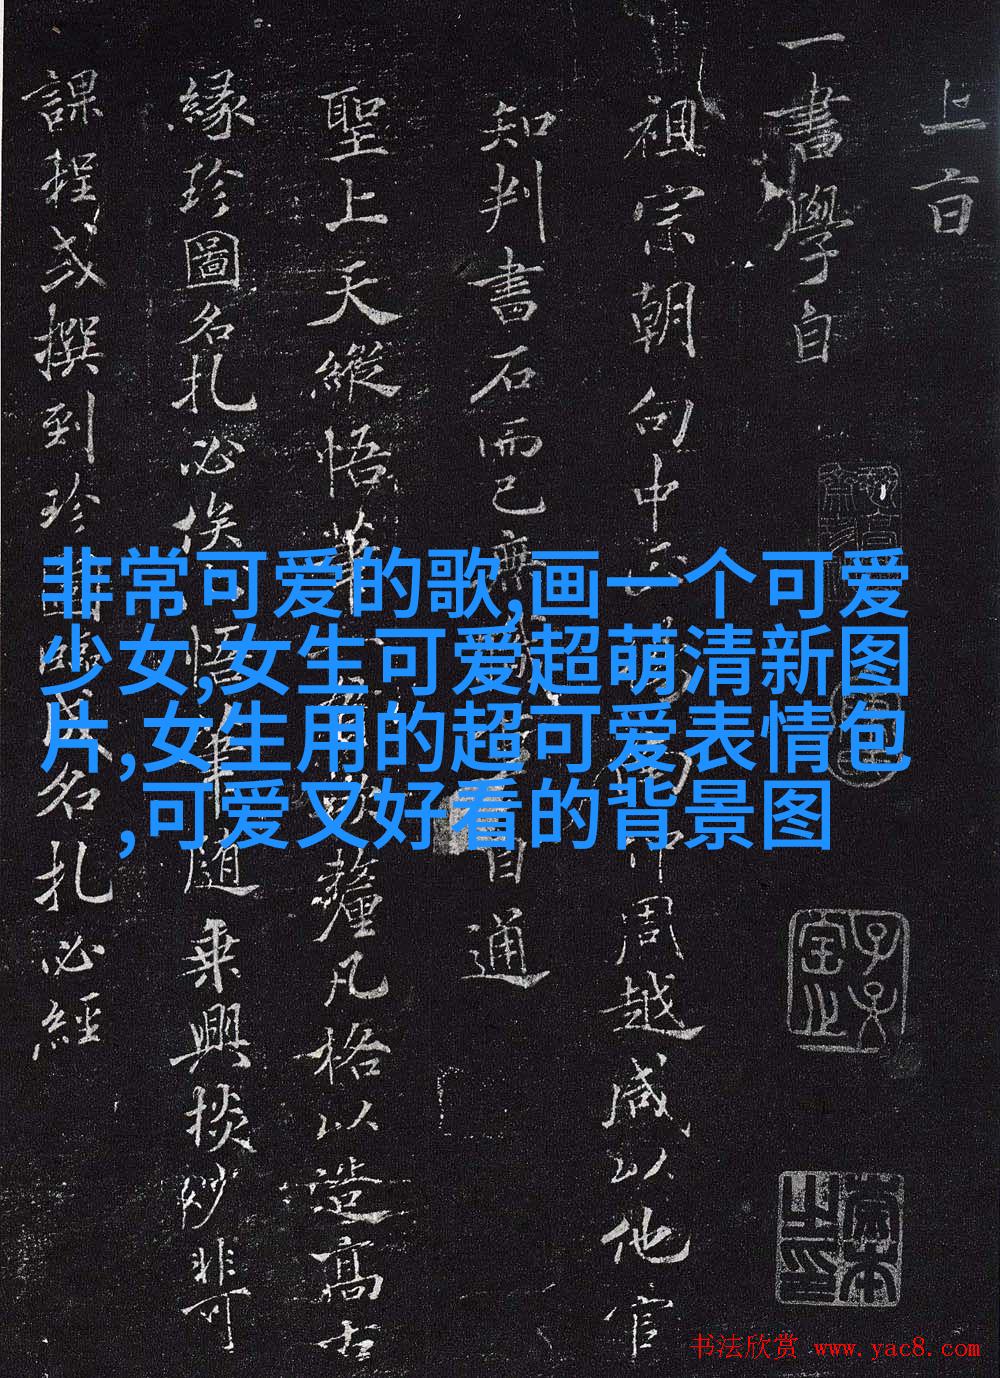 上旨
一書學自
祖宗朝向中
周越咸以他官
知判書石而已
自通
聖上天縱悟筆
釐凡格以造高古
緣珍圖名札必俟
悟筆隨乘興揮妙非可
課程或撰到珍圖
名札必經
非常可爱的歌,画一个可爱
少女,女生可爱超萌清新图
片,女生用的超可爱表情包
,可爱又好看的背景图
书法欣赏 www.yac8.com